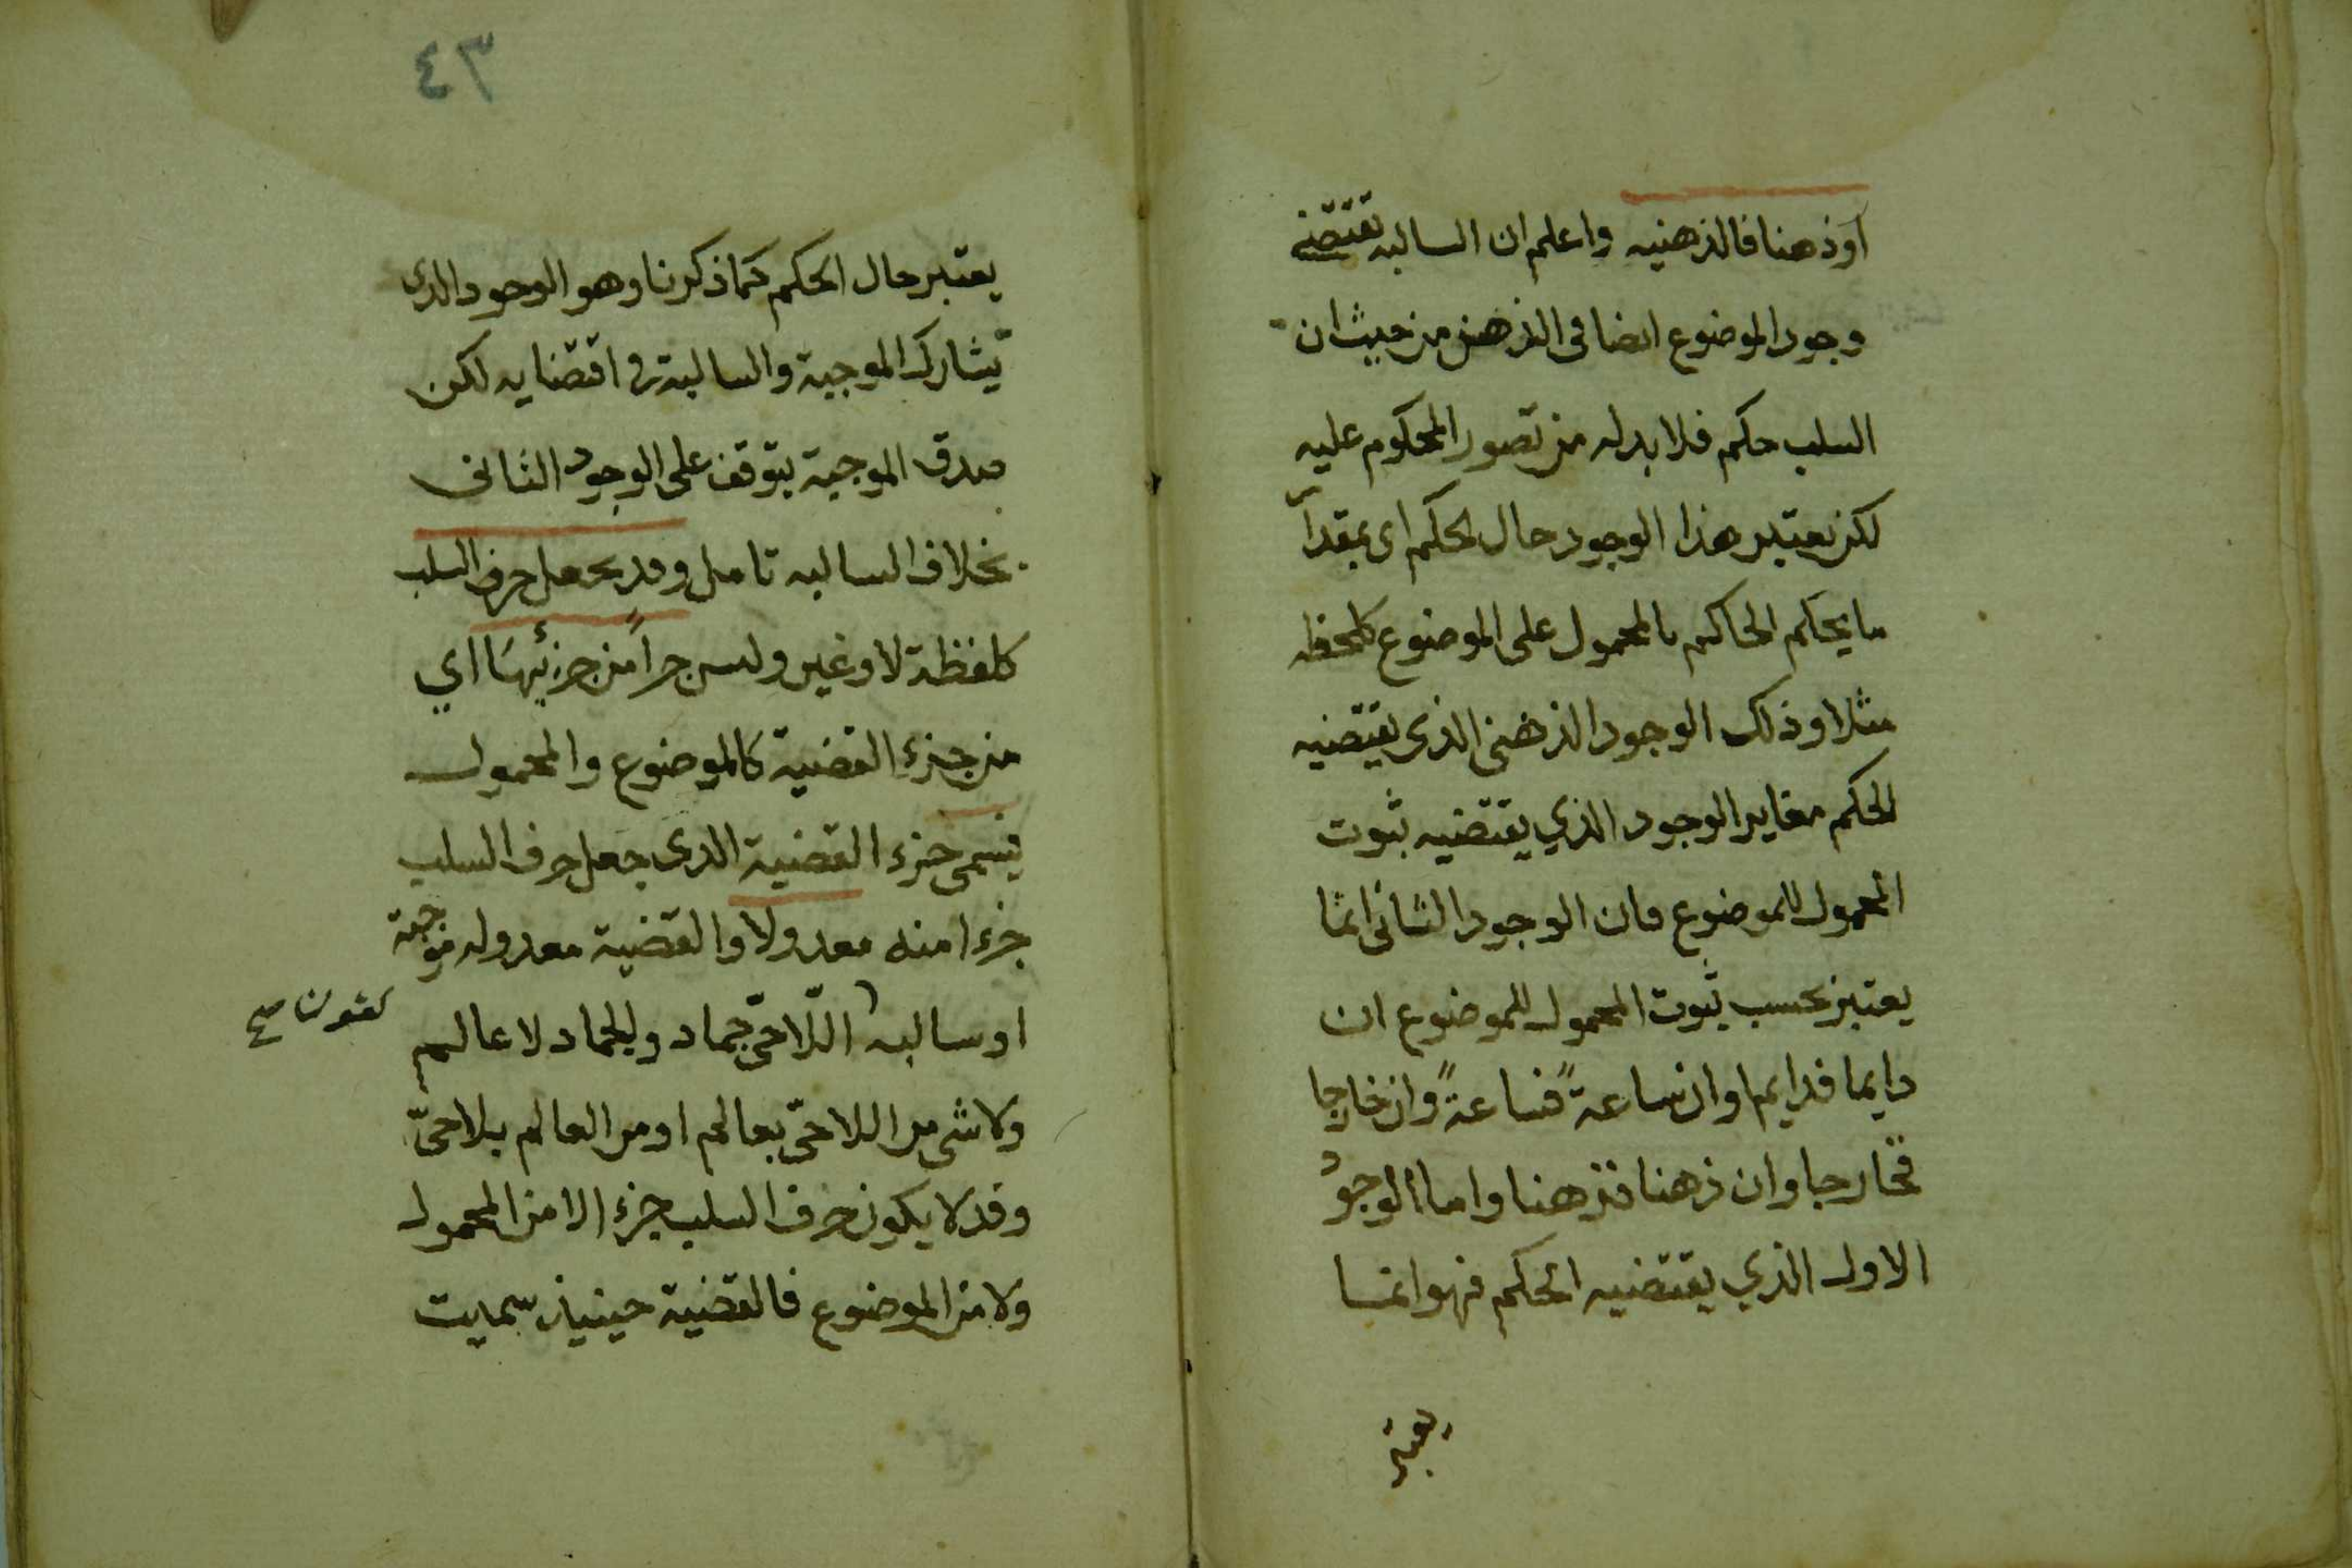 اوذهنا فالذهنيه واعلم ان السالبه تقتضى
وجود الموضوع ايضا فى الذهن من حيث ان
السلب حكم فلا بد له من تصور المحكوم عليه
لكن يعتبر هذا الوجود حال الحكم اى بمقدار
ما يحكم الحاكم بالمحمول على الموضوع كلحظه
مثلا وذلك الوجود الذهنى الذى يقتضيه
الحكم مغاير الوجود الذي يقتضيه ثبوت
المحمول للموضوع فان الوجود الثانى انما
يعتبر بحسب ثبوت المحمول للموضوع ان
دايما فدايما وان ساعةً فساعةً وان خارجا
فخارجا وان ذهنا فذهنا واما الوجود
الاول الذي يقتضيه الحكم فهو انما
يعتبر
٣٤
يعتبر حال الحكم كما ذكرنا وهو الوجود الذى
يشارك الموجبة والسالبة فى اقتضايه لكن
صدق الموجبة يتوقف على الوجود الثانى
بخلاف السالبه تامل وقد يجعل حرف السلب
كلفظة لا وغير وليس جزاً من جزئيها اي
من جزء القضية كالموضوع والمحمول
فيسمى جزء القضية الذى جعل حرف السلب
جزء امنه معدولا والقضية معدوله موجبة
او سالبه اللّاحىّ جماد والجماد لا عالم
كقولنا صح
ولا شى من اللاحىّ بعالم او من العالم بلاحىّ
وقد لا يكون حرف السلب جزء الا من المحمول
ولا من الموضوع فالقضية حينيذ سميت